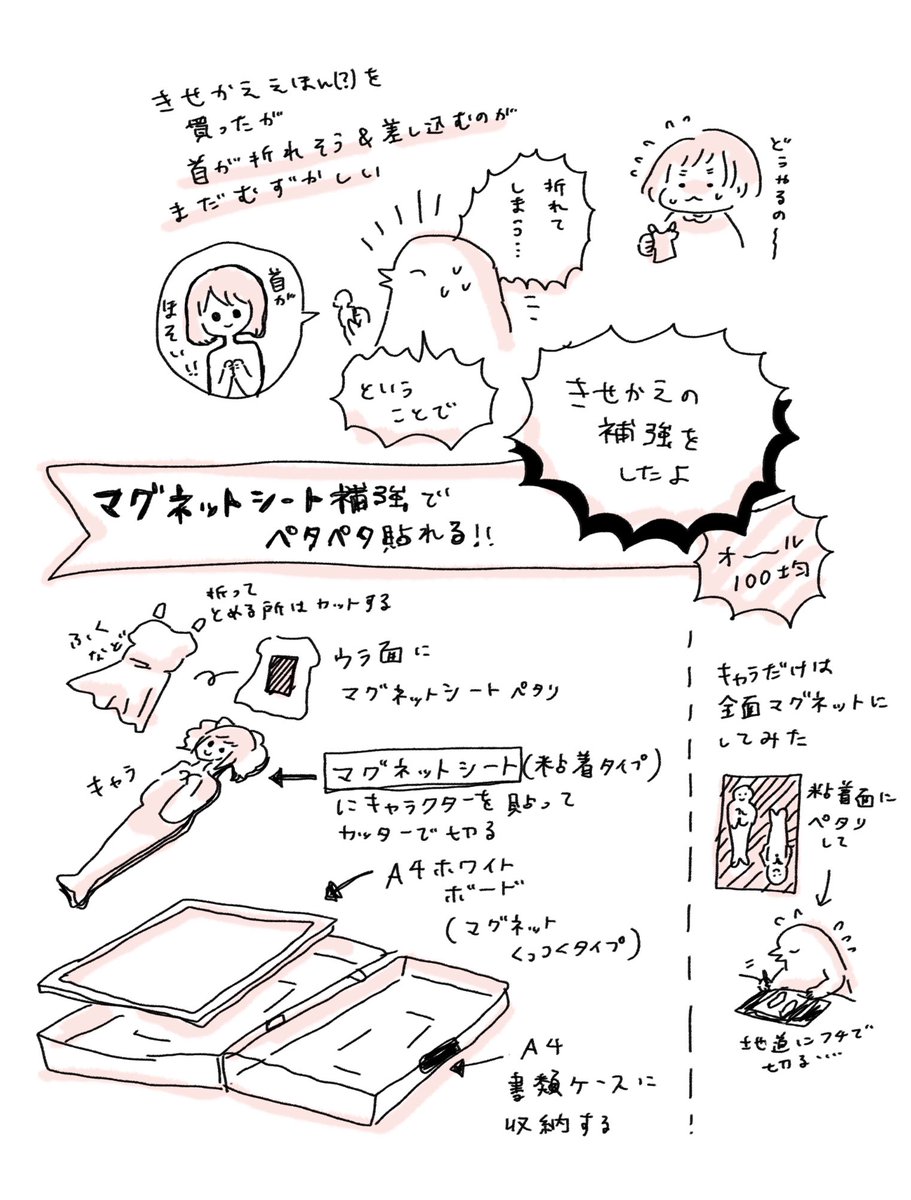 きせかええほん(?)を
買ったが
首が折れそう&差し込むのが
まだむずかしい
どうやるの〜
折れて
しまう…
首が
ほそいい!!
という
ことで
きせかえの
補強を
したよ
マグネットシート補強で
ペタペタ貼れる!!
オール
100均
折って
とめる所はカットする
ふく
など
ウラ面に
マグネットシートペタリ
キャラ
マグネットシート(粘着タイプ)
にキャラクターを貼って
カッターで切る
A4ホワイト
ボード
(マグネット
くっつくタイプ)
A4
書類ケースに
収納する
キャラだけは
全面マグネットに
してみた
粘着面に
ペタリ
して
地道にフチで
切る‥‥